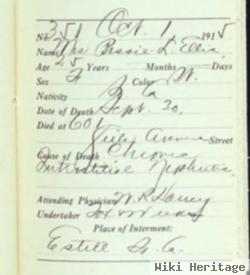 No. 351 Oct. 1 1915
Name Mrs Bessie L. Ellis
Age 25 Years Months Days
Sex F Color W.
Nativity Ga
Date of Death Sept. 30
Died at 601
Street
Cause of Death Chronic
Interstitial Nephritis
Attending Physician W. R. Dancy
Undertaker
Place of Interment:
Estill So. Ca.
Wiki Heritage